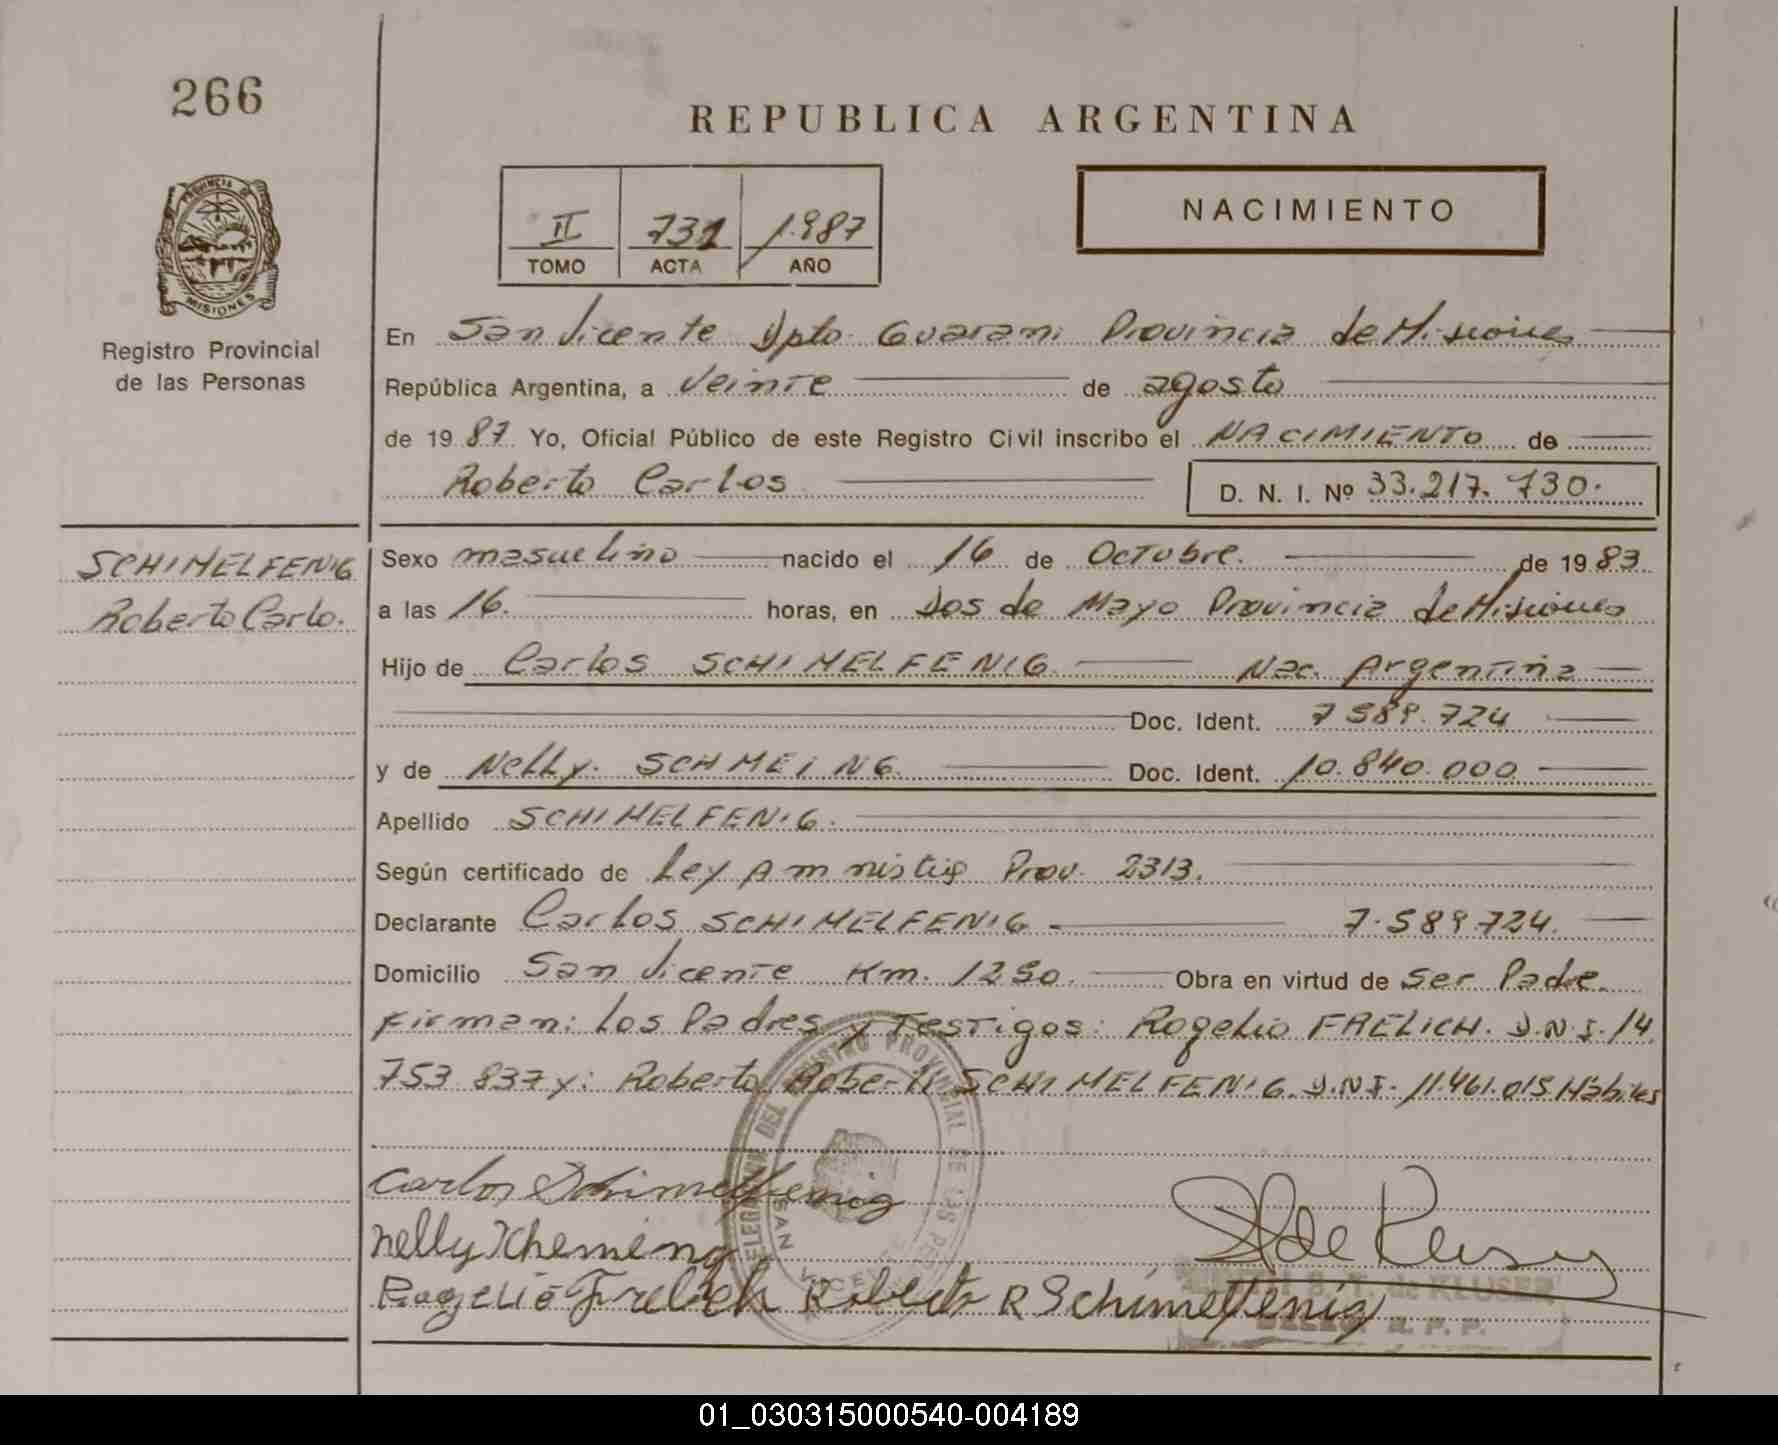 266
REPUBLICA ARGENTINA
PROVINCIA DE
MISIONES
Registro Provincial
de las Personas
II 731 1.987
TOMO ACTA AÑO
NACIMIENTO
En San Vicente Dpto. Guarani Provincia de Misiones
República Argentina, a Veinte de agosto
de 19 87 Yo, Oficial Público de este Registro Civil inscribo el NACIMIENTO de
Roberto Carlos D. N. I. Nº 33.217.730.
SCHIMELFENIG
Roberto Carlo.
Sexo masculino nacido el 16 de Octubre. de 19 83
a las 16. horas, en Dos de Mayo Provincia de Misiones
Hijo de Carlos SCHIMELFENIG Nac. Argentina
Doc. Ident. 7.589.724
y de Nelly. SCHMEING. Doc. Ident. 10.840.000
Apellido SCHIMELFENIG.
Según certificado de Ley Amnistia Prov. 2313.
Declarante Carlos SCHIMELFENIG 7.589.724.
Domicilio San Vicente Km. 1250. Obra en virtud de ser Padre.
Firman: los Padres y Testigos: Rogelio FRELICH. D.N.I. 14.
753.837 y: Roberto Roberti SCHIMELFENIG. D.N.I. 11.461.015 Hábiles
REGISTRO PROVINCIAL DE LAS
SAN VICENTE
Carlos Schimelfenig
Nelly Schemeing
Rogelio Frelich Roberto R Schimelfenig
de KLUSER
01_030315000540-004189